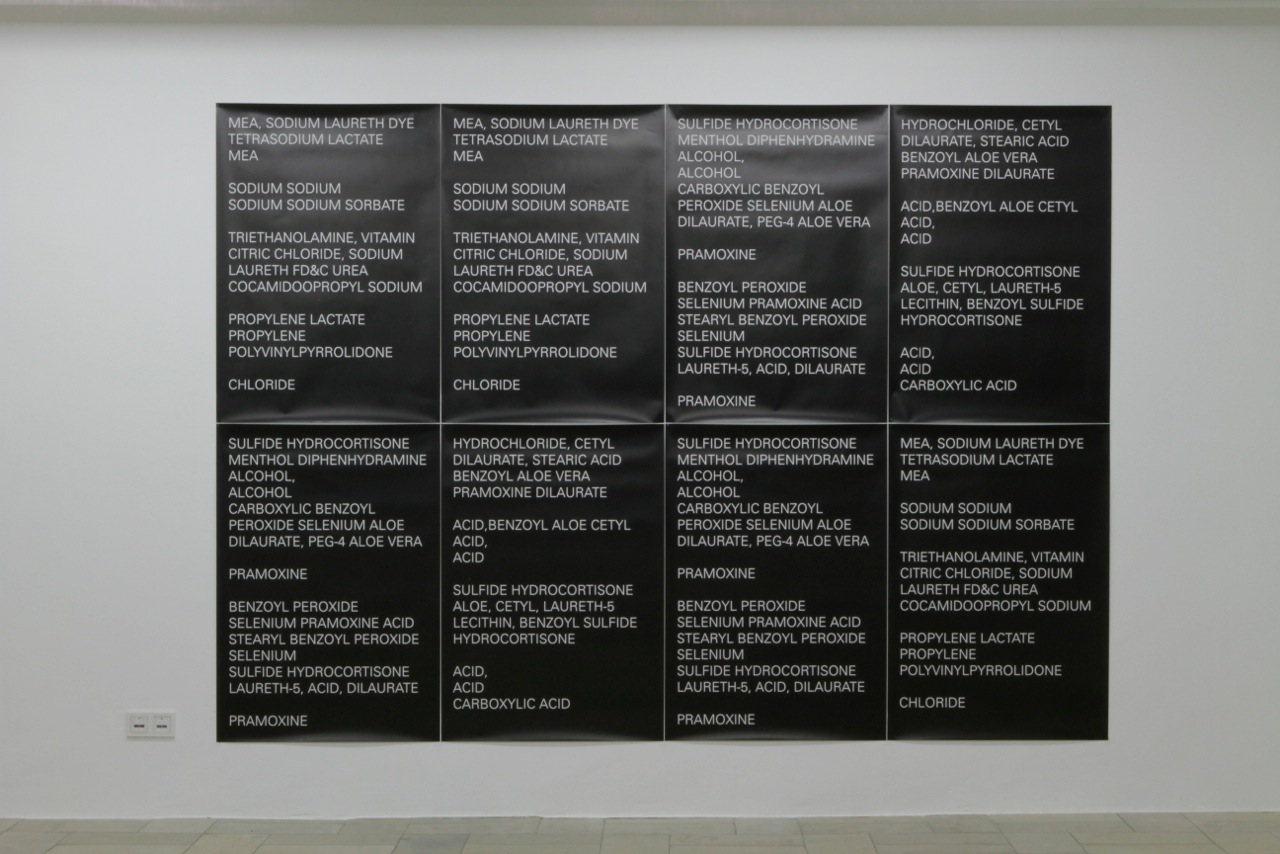 MEA, SODIUM LAURETH DYE
TETRASODIUM LACTATE
MEA
SODIUM SODIUM
SODIUM SODIUM SORBATE
TRIETHANOLAMINE, VITAMIN
CITRIC CHLORIDE, SODIUM
LAURETH FD&C UREA
COCAMIDOOPROPYL SODIUM
PROPYLENE LACTATE
PROPYLENE
POLYVINYLPYRROLIDONE
CHLORIDE
MEA, SODIUM LAURETH DYE
TETRASODIUM LACTATE
MEA
SODIUM SODIUM
SODIUM SODIUM SORBATE
TRIETHANOLAMINE, VITAMIN
CITRIC CHLORIDE, SODIUM
LAURETH FD&C UREA
COCAMIDOOPROPYL SODIUM
PROPYLENE LACTATE
PROPYLENE
POLYVINYLPYRROLIDONE
CHLORIDE
SULFIDE HYDROCORTISONE
MENTHOL DIPHENHYDRAMINE
ALCOHOL,
ALCOHOL
CARBOXYLIC BENZOYL
PEROXIDE SELENIUM ALOE
DILAURATE, PEG-4 ALOE VERA
PRAMOXINE
BENZOYL PEROXIDE
SELENIUM PRAMOXINE ACID
STEARYL BENZOYL PEROXIDE
SELENIUM
SULFIDE HYDROCORTISONE
LAURETH-5, ACID, DILAURATE
PRAMOXINE
HYDROCHLORIDE, CETYL
DILAURATE, STEARIC ACID
BENZOYL ALOE VERA
PRAMOXINE DILAURATE
ACID,BENZOYL ALOE CETYL
ACID,
ACID
SULFIDE HYDROCORTISONE
ALOE, CETYL, LAURETH-5
LECITHIN, BENZOYL SULFIDE
HYDROCORTISONE
ACID,
ACID
CARBOXYLIC ACID
SULFIDE HYDROCORTISONE
MENTHOL DIPHENHYDRAMINE
ALCOHOL,
ALCOHOL
CARBOXYLIC BENZOYL
PEROXIDE SELENIUM ALOE
DILAURATE, PEG-4 ALOE VERA
PRAMOXINE
BENZOYL PEROXIDE
SELENIUM PRAMOXINE ACID
STEARYL BENZOYL PEROXIDE
SELENIUM
SULFIDE HYDROCORTISONE
LAURETH-5, ACID, DILAURATE
PRAMOXINE
HYDROCHLORIDE, CETYL
DILAURATE, STEARIC ACID
BENZOYL ALOE VERA
PRAMOXINE DILAURATE
ACID,BENZOYL ALOE CETYL
ACID,
ACID
SULFIDE HYDROCORTISONE
ALOE, CETYL, LAURETH-5
LECITHIN, BENZOYL SULFIDE
HYDROCORTISONE
ACID,
ACID
CARBOXYLIC ACID
SULFIDE HYDROCORTISONE
MENTHOL DIPHENHYDRAMINE
ALCOHOL,
ALCOHOL
CARBOXYLIC BENZOYL
PEROXIDE SELENIUM ALOE
DILAURATE, PEG-4 ALOE VERA
PRAMOXINE
BENZOYL PEROXIDE
SELENIUM PRAMOXINE ACID
STEARYL BENZOYL PEROXIDE
SELENIUM
SULFIDE HYDROCORTISONE
LAURETH-5, ACID, DILAURATE
PRAMOXINE
MEA, SODIUM LAURETH DYE
TETRASODIUM LACTATE
MEA
SODIUM SODIUM
SODIUM SODIUM SORBATE
TRIETHANOLAMINE, VITAMIN
CITRIC CHLORIDE, SODIUM
LAURETH FD&C UREA
COCAMIDOOPROPYL SODIUM
PROPYLENE LACTATE
PROPYLENE
POLYVINYLPYRROLIDONE
CHLORIDE